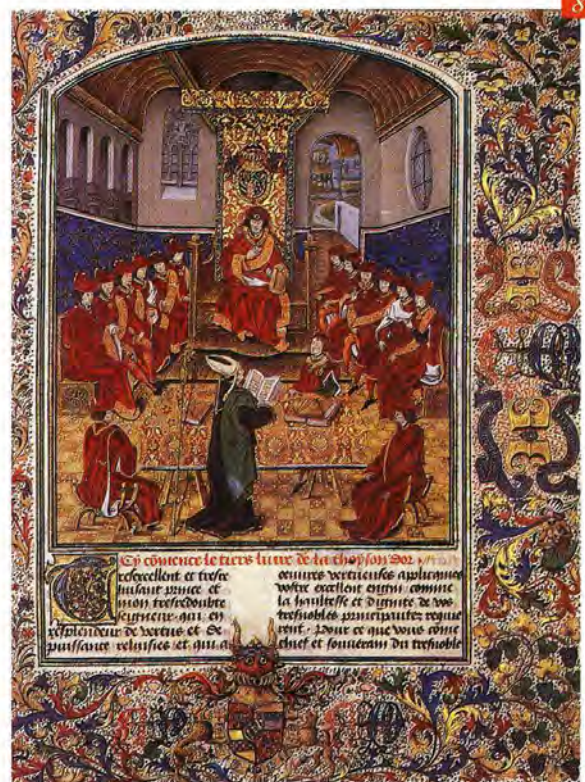 Cy cōmence le tiers livre de la thoyson dor
Tresexcellent et tres
puisant prince et
mon tresredoubte
seigneur. qui en
resplendeur de vertus et de
puissance reluisies et qui a
oeuvres vertueuses appliques
vostre excellent engin comme
la haultesse et dignite de vos
tresnobles principautez requie
rent. Pour ce que vous come
chief et souverain du tresnoble